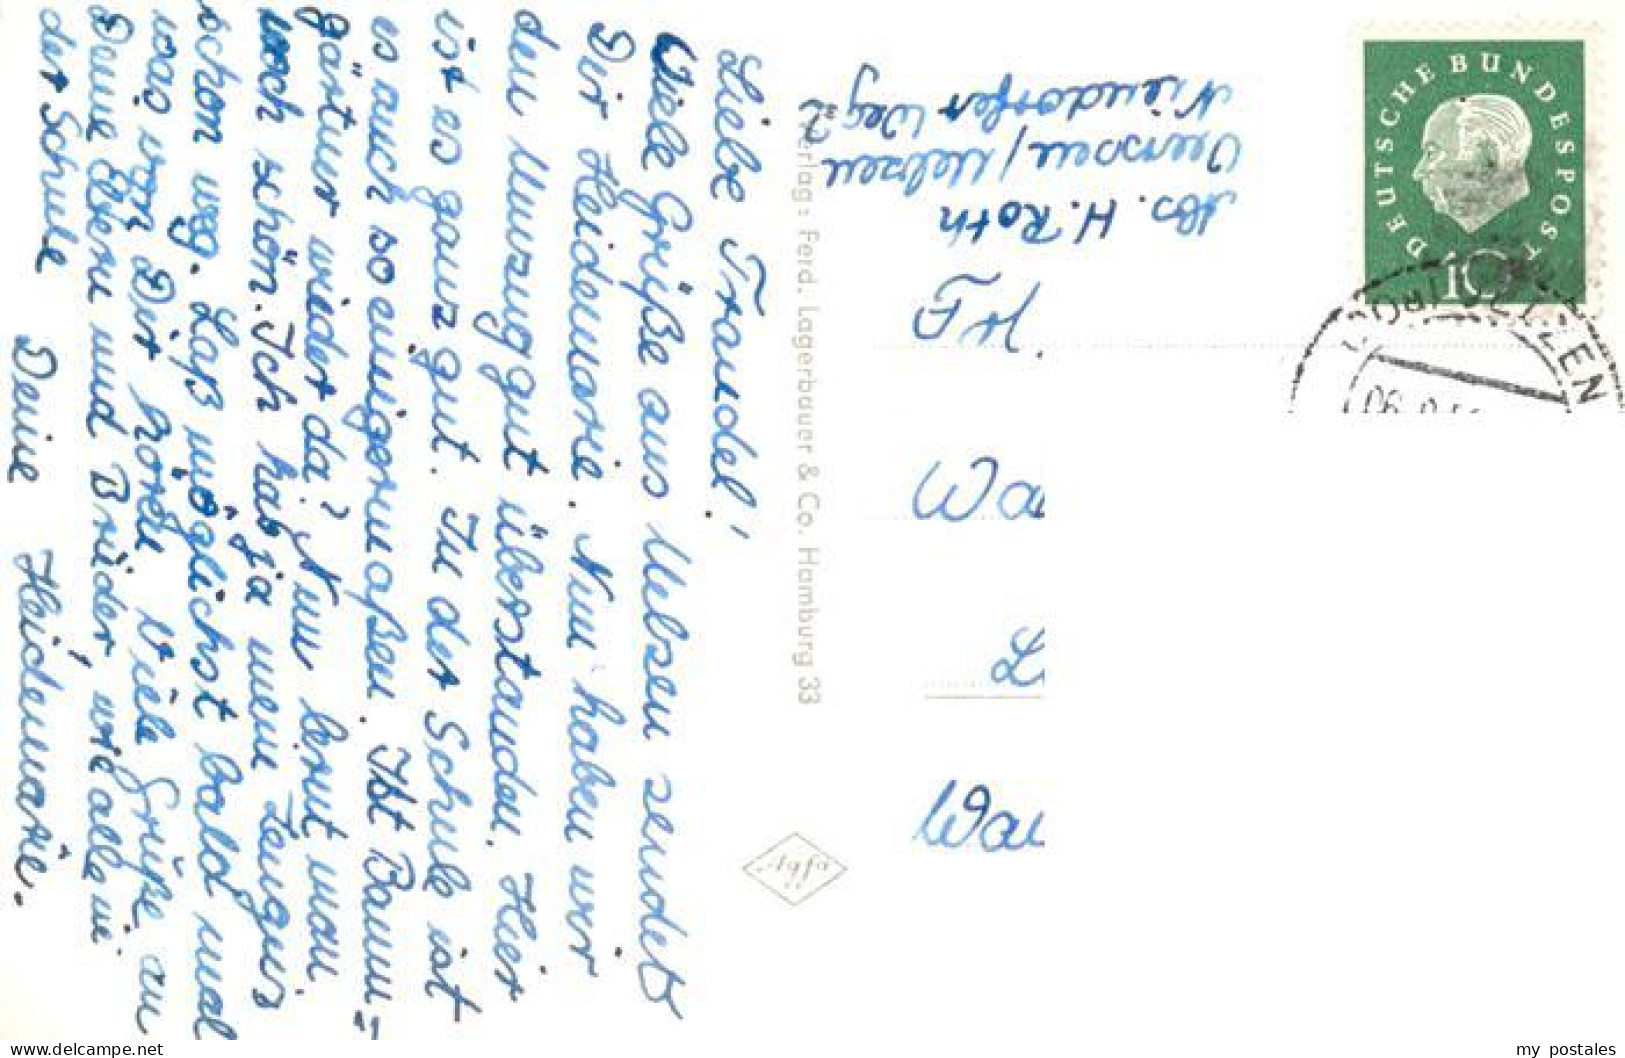 Liebe Traudel!
Viele Grüße aus Uelzen sendet
Dir Heidemarie. Nun haben wir
den Umzug gut überstanden. Hier
ist es ganz gut. In der Schule ist
es auch so einigermaßen. Ist Baum=
gärtner wieder da? Nun lernt man
noch schön. Ich hab ja mein Zeugnis
schon weg. Laß möglichst bald mal
was von Dir hören. Viele Grüße an
Deine Eltern und Brüder, wie alle in
der Schule
Deine Heidemarie.
Verlag: Ferd. Lagerbauer & Co. Hamburg 33
Abs. H. Roth
Veerssen/Uelzen
Niendorfer Weg 2
DEUTSCHE BUNDESPOST
10
my postales